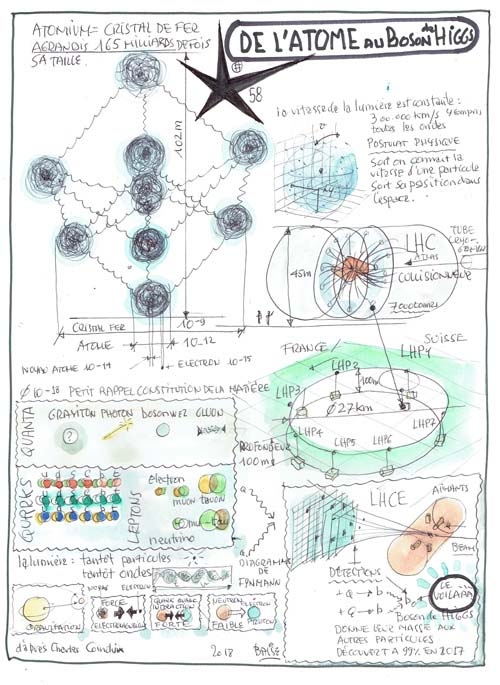 ATOMIUM = CRISTAL DE FER
AGRANDIS 165 MILLIARDS DE FOIS
SA TAILLE.
DE L'ATOME AU BOSON de HIGGS
58
102m
vitesse de la lumière est constante :
300.000 km/s
toutes les ondes
POSTULAT PHYSIQUE
Soit on connait la
vitesse d'une particule
Soit sa position dans
l'espace.
LHC
ATLAS
COLLISIONNEUR
TUBE
45m
7000 tours
CRISTAL FER 10-9
ATOME 10-12
NOYAU ATOME 10-14
ELECTRON 10-15
Ø 10-18 PETIT RAPPEL CONSTITUTION DE LA MATIÈRE
FRANCE/
SUISSE
LHP1
LHP2
LHP3
LHP4
LHP5
LHP6
LHP7
100m
Ø 27km
PROFONDEUR
100m
QUANTA
GRAVITON PHOTON BOSON WEZ GLUON
?
QUARKS
u d s c b t
LEPTONS
electron
muon tauon
neutrino
la lumière : tantôt particules
tantôt ondes
NOYAU ELECTRON
DIAGRAMME
DE
FEYNMANN
GRAVITATION
FORCE
ELECTROMAGN
QUARK QUARK
INTERACTION
FORTE
NEUTRON
FAIBLE
ELECTRON
PROTON
LHCE
AIMANTS
BEAM
DÉTECTIONS
LE
VOILAAA
Boson de HIGGS
DONNE LEUR MASSE AUX
AUTRES PARTICULES
DÉCOUVERT A 99% EN 2017
d'après Charles Coinduin
2017
BALISE